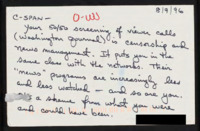 8/9/96
C-SPAN -
Your 50/50 screening of viewer calls
(Washington Journal) is censorship and
news management. It puts you in the
same class with the networks. Their
"news" programs are increasingly less
and less watched - and so are you.
a shame from what you were
and could have been.